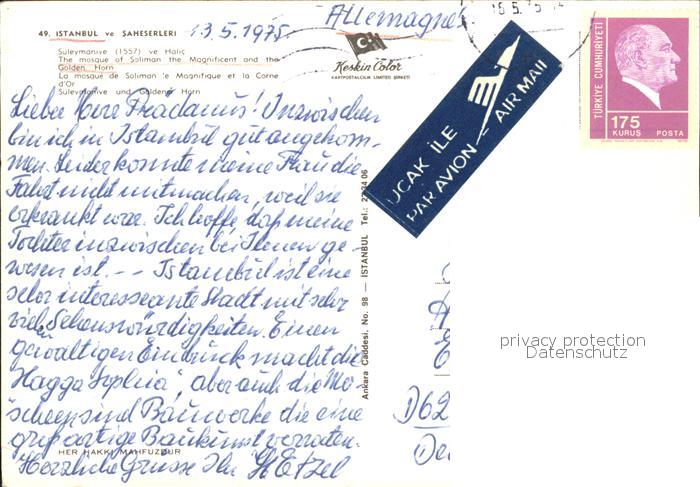 49. ISTANBUL ve ŞAHESERLERİ
13.5.1975
Allemagne
Süleymaniye (1557) ve Haliç
The mosque of Soliman the Magnificent and the
Golden Horn
La mosque de Soliman le Magnifique et la Corne
d'Or
Süleymaniye und Goldenes Horn
Keskin Color
KARTPOSTALCILIK LIMITED ŞİRKETİ
UÇAK İLE
PAR AVION
AIR MAIL
TÜRKİYE CUMHURİYETİ
175
KURUŞ POSTA
Lieber Herr Fradamus! Inzwischen
bin ich in Istambul gut angekom-
men. Leider konnte meine Frau die
Fahrt nicht mitmachen, weil sie
erkrankt war. Ich hoffe, daß meine
Tochter inzwischen bei Ihnen ge
wesen ist. -- Istambul ist eine
sehr interessante Stadt mit sehr
viel Sehenswürdigkeiten. Einen
gewaltigen Eindruck macht die
Hagga Sophia, aber auch die Mo-
scheen sind Bauwerke die eine
großartige Baukunst verraten.
HER HAKKI MAHFUZDUR
Herzliche Grüsse Ihr H Etzel
Ankara Caddesi, No. 98 — ISTANBUL Tel.: 22 34 06
D62
privacy protection
Datenschutz